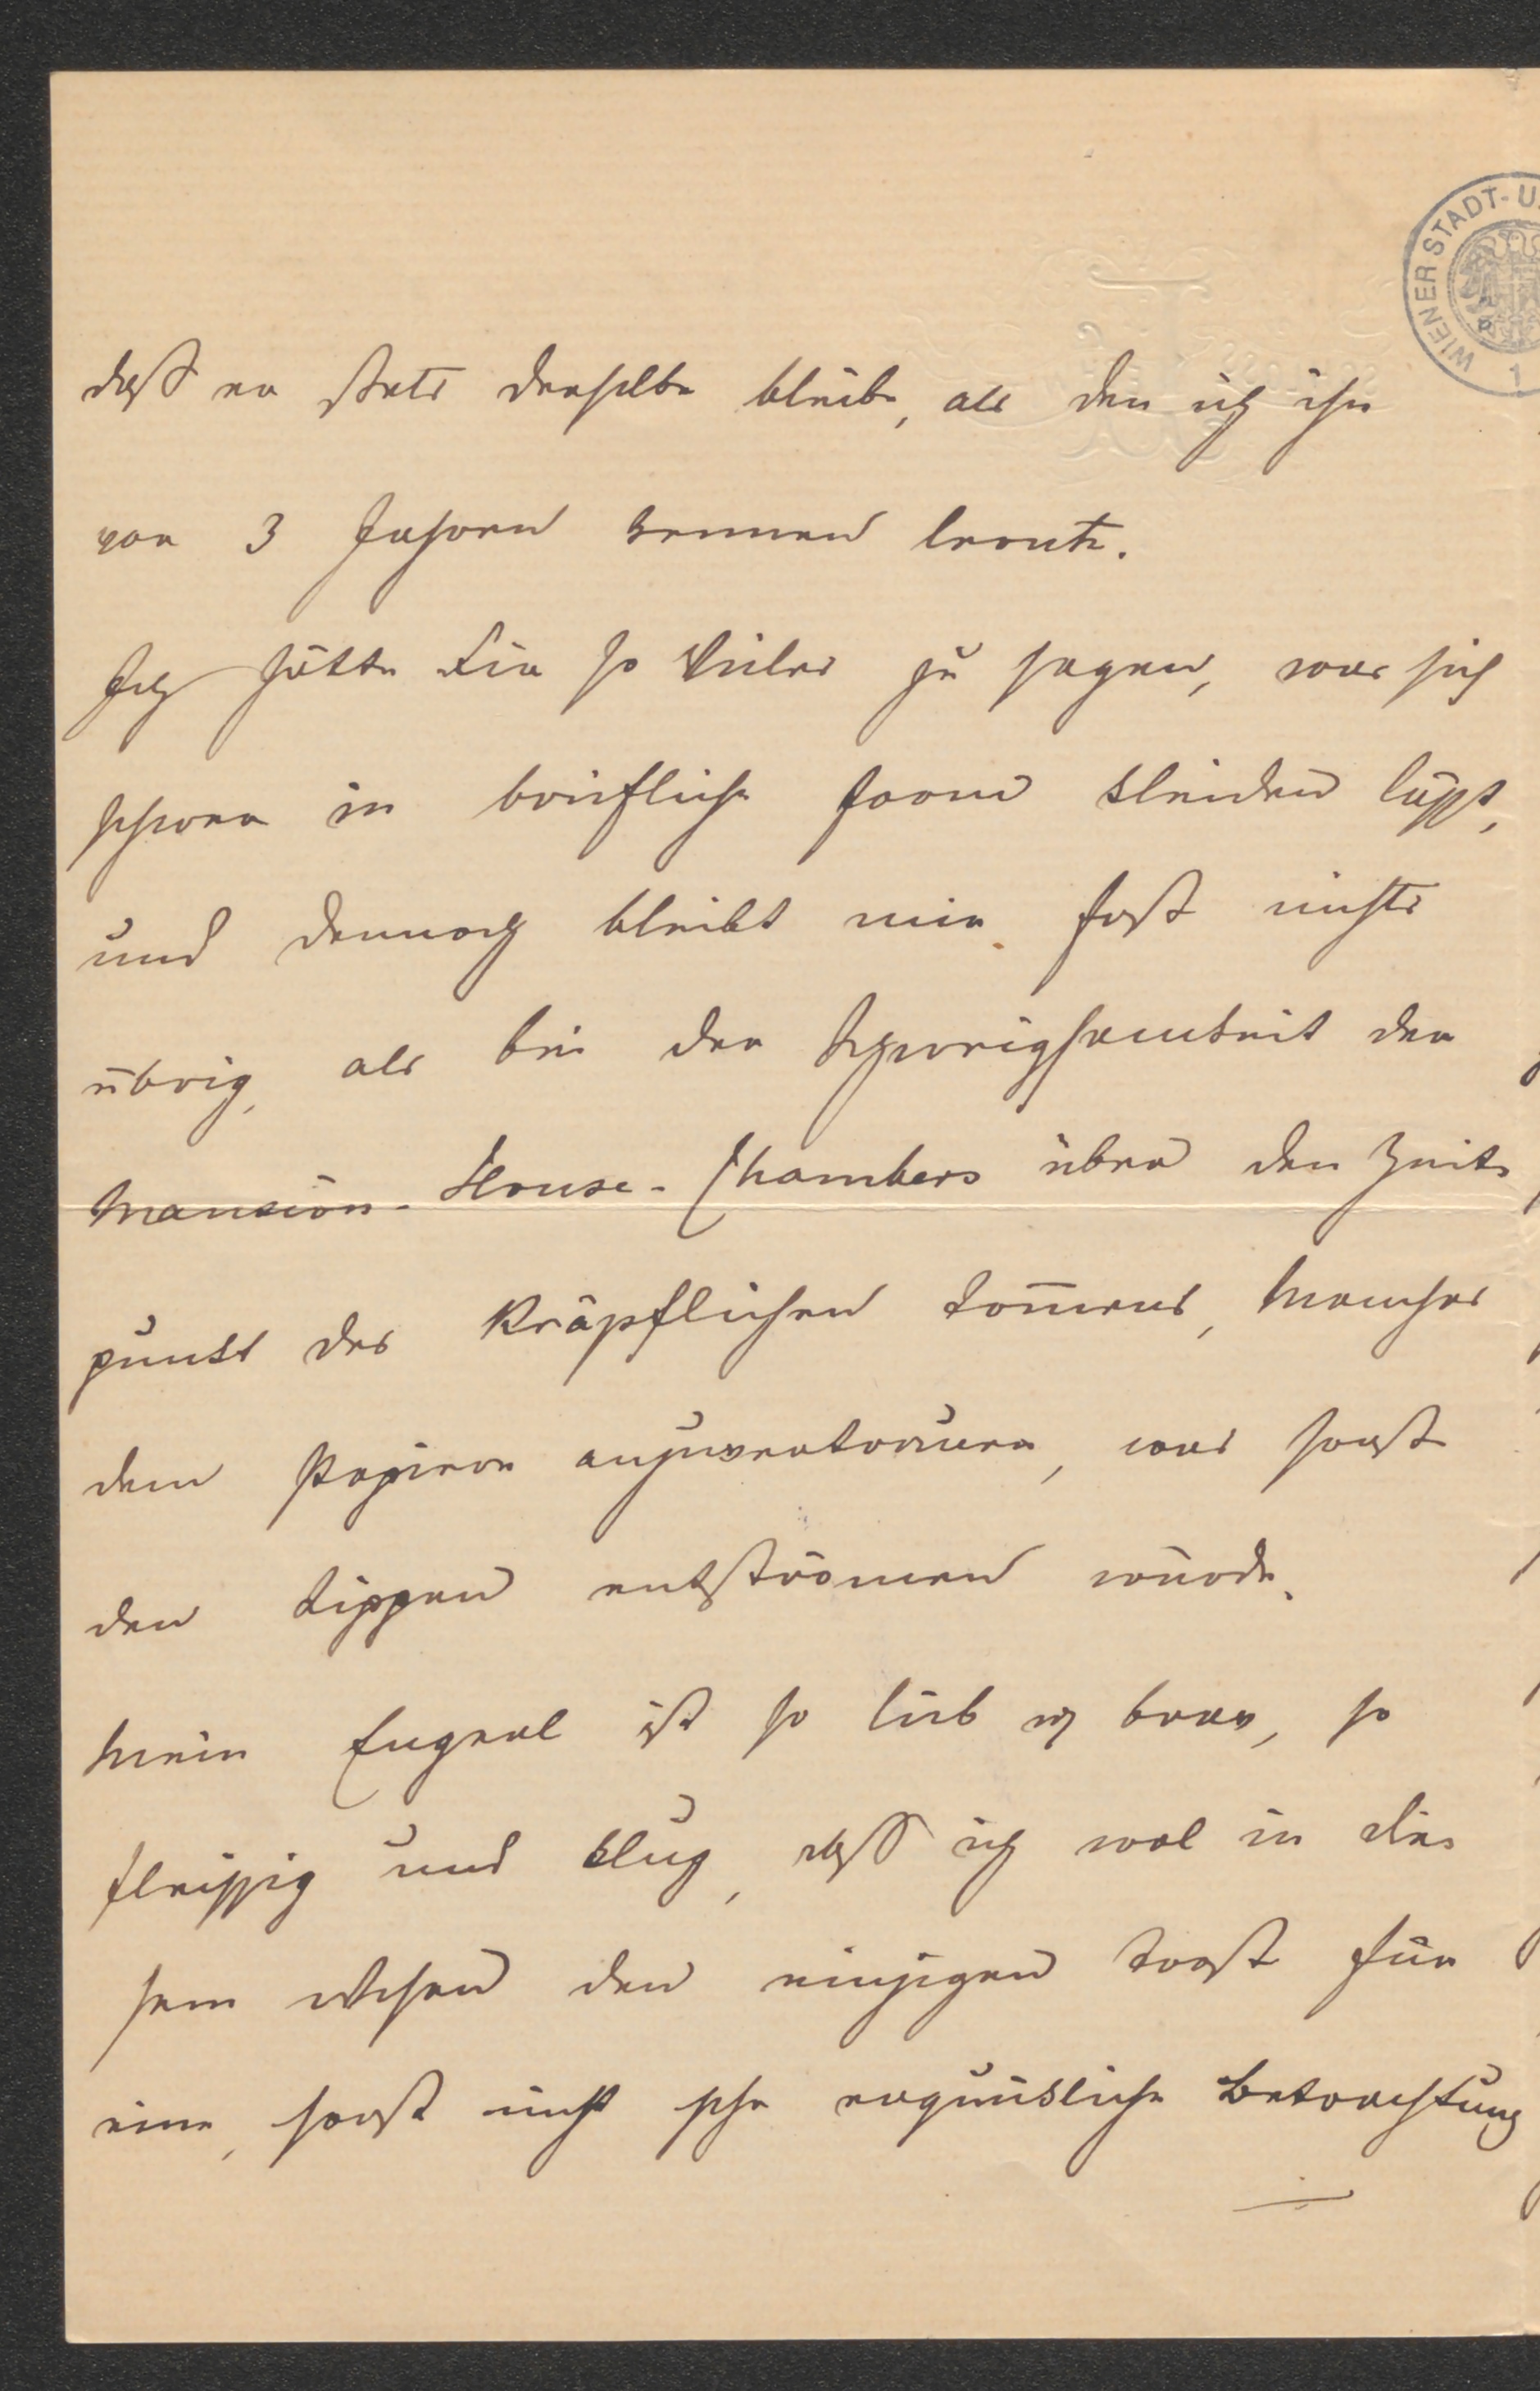 WIENER STADT- U.
1
daß er stets derselbe bleibe, als den ich ihn
vor 3 Jahren kennen lernte.
Ich hätte Dir so Vieles zu sagen, was sich
schwer in briefliche Form kleiden läßt,
und dennoch bleibt mir fast nichts
übrig, als bei der Schweigsamkeit der
Mansion-House-Chambers über den Zeit-
punkt des Kommens, Manches
dem Papiere anzuvertrauen, was sonst
den Lippen entströmen würde.
Mein Engerl ist so lieb u brav, so
fleißig und klug, daß ich wol in die-
sem Wesen den einzigen Trost für
eine, sonst nicht sehr erquickliche Betrachtung